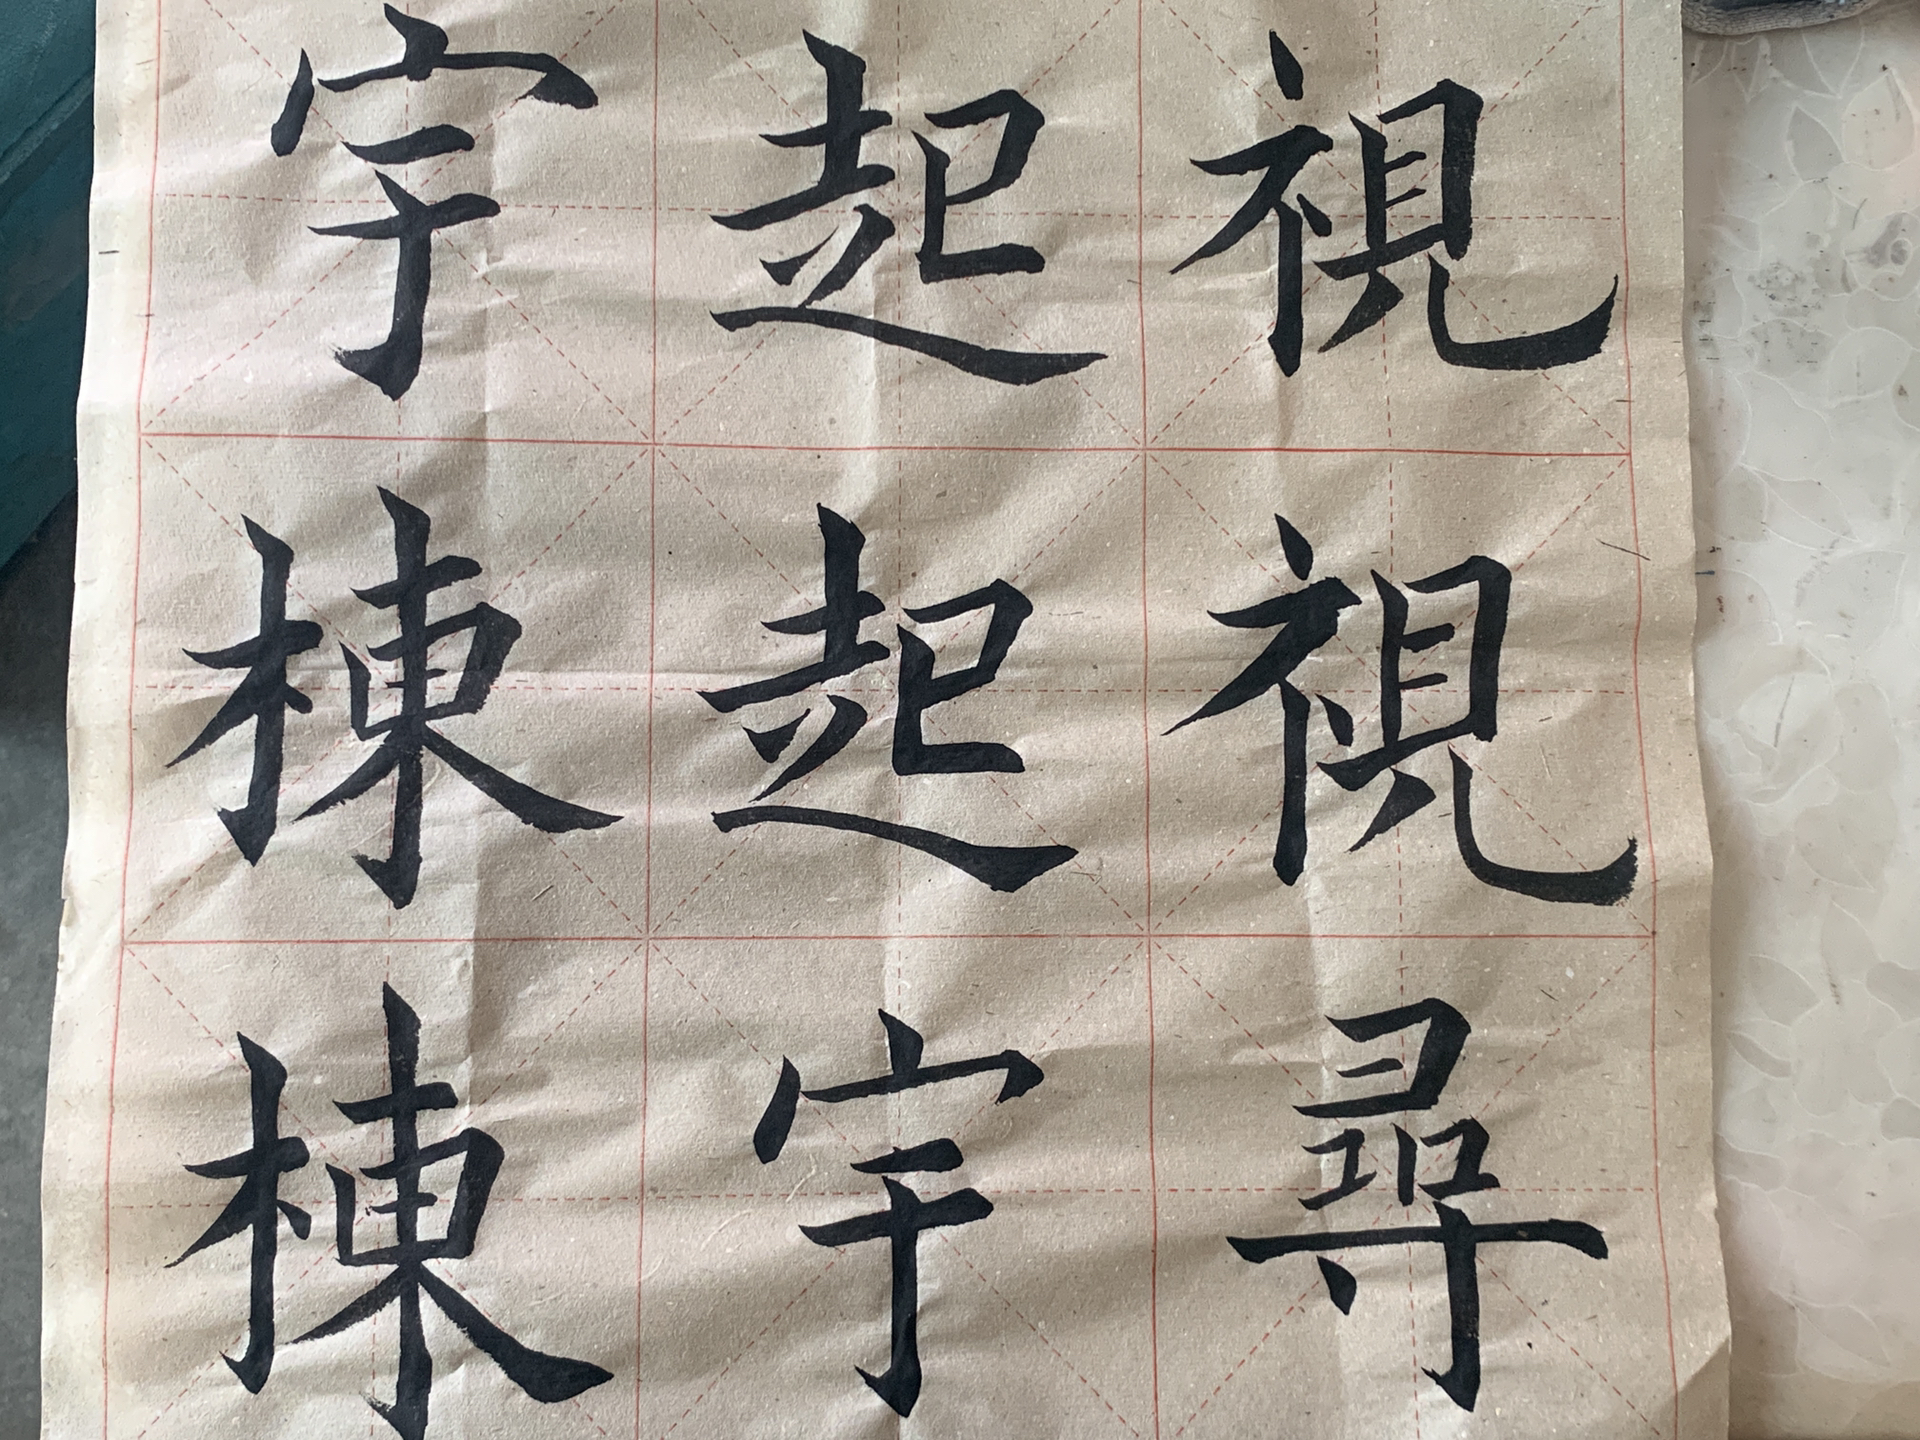 視視尋
起起宇
宇棟棟